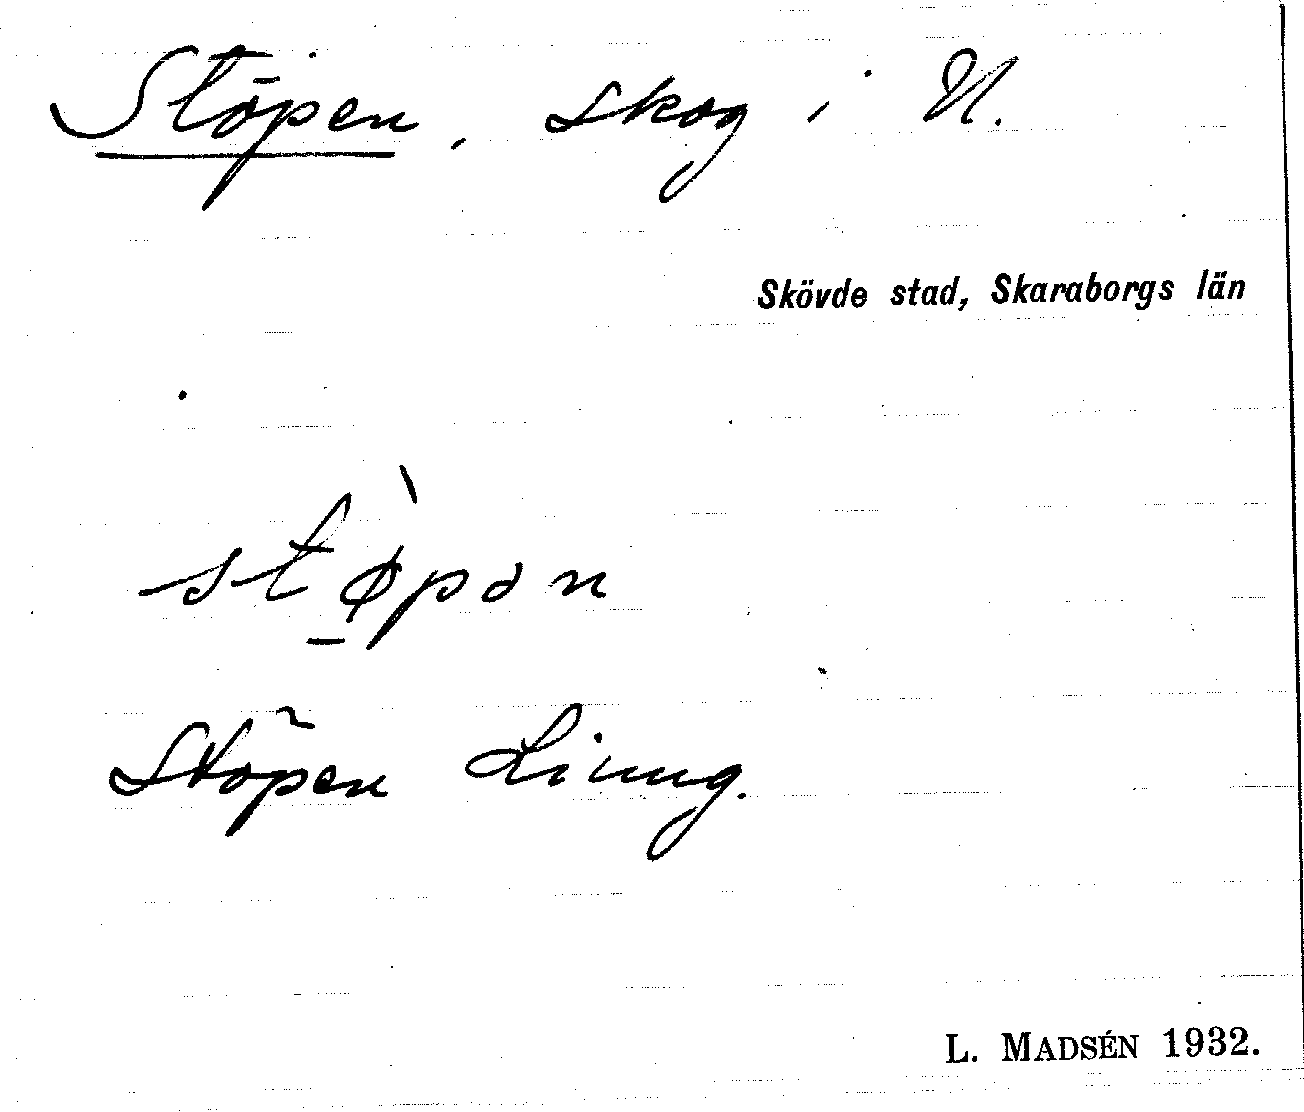 Stöpen, skog i N.
Skövde stad, Skaraborgs län
stø̀pən
Stöpen Liung.
L. MADSÉN 1932.